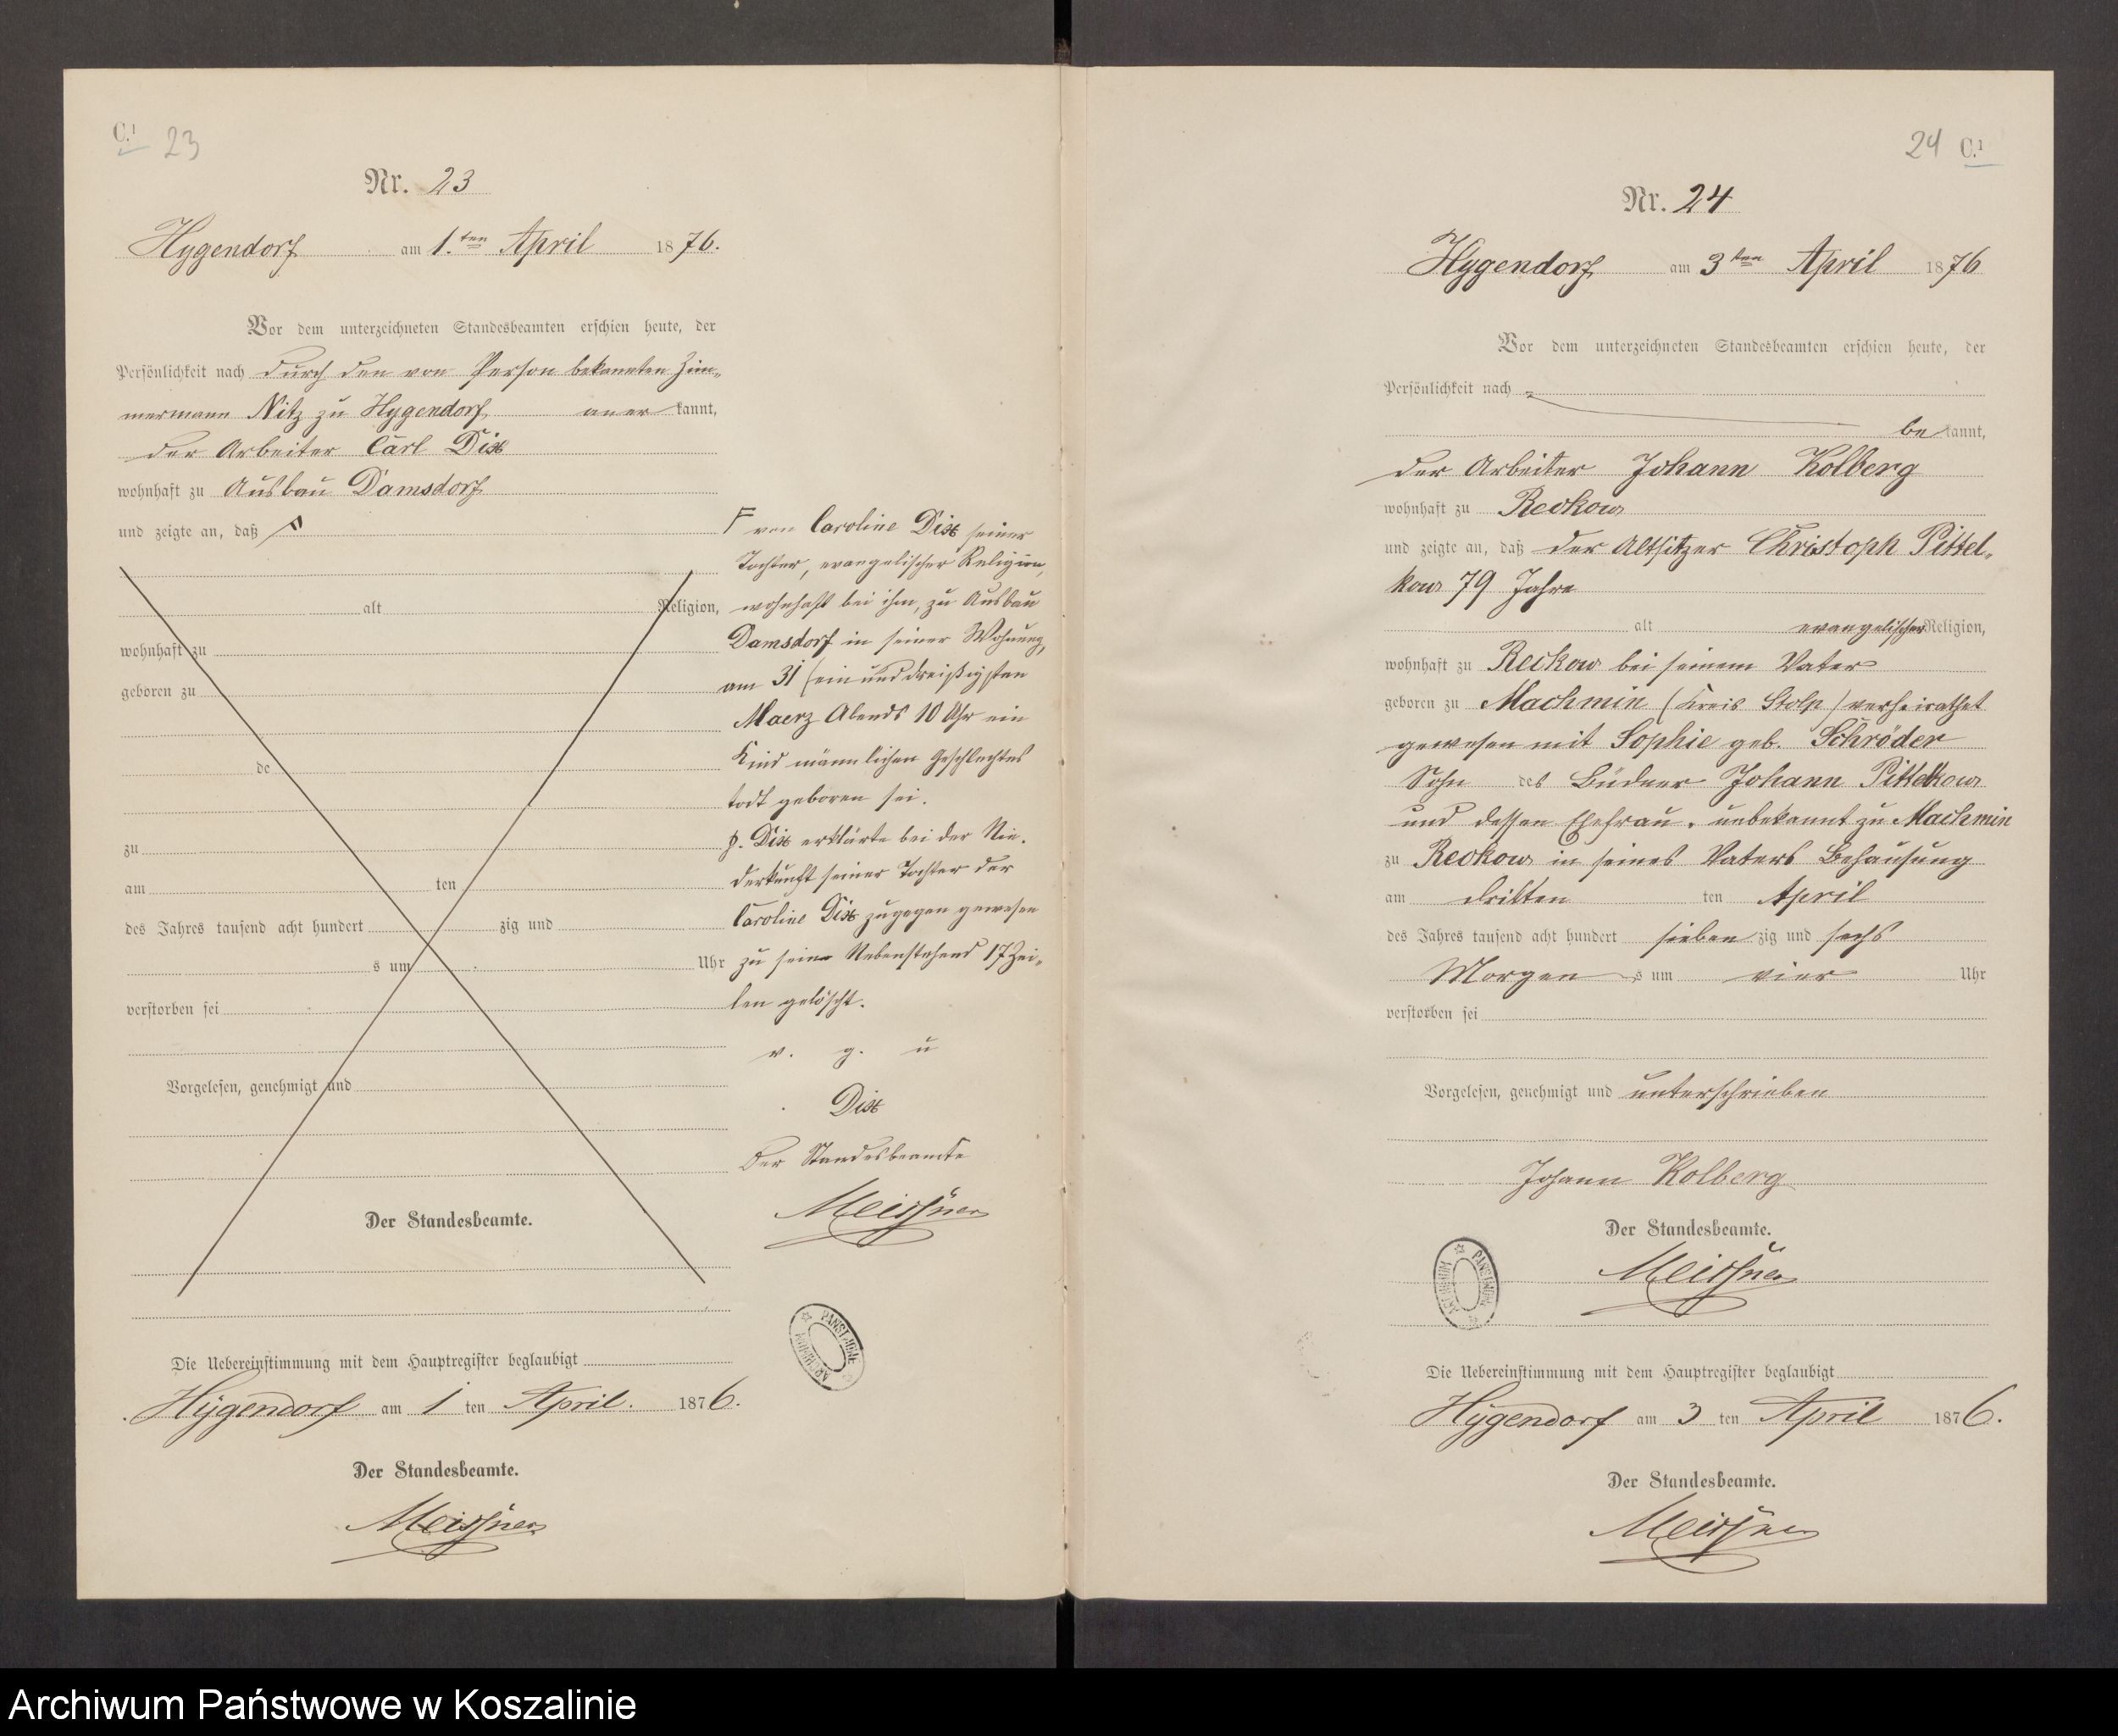 C.1 23
Nr. 23
Hygendorf am 1.ten April 1876.
Vor dem unterzeichneten Standesbeamten erschien heute, der
Persönlichkeit nach durch den von Person bekannten Zim-
mermann Nitz zu Hygendorf aner kannt,
der Arbeiter Carl Dix
wohnhaft zu Ausbau Damsdorf
und zeigte an, daß
alt Religion,
wohnhaft zu
geboren zu
de
zu
am ten
des Jahres tausend acht hundert zig und
s um Uhr
verstorben sei
Vorgelesen, genehmigt und
Der Standesbeamte.
von Caroline Dix seiner
Tochter, evangelischer Religion,
wohnhaft bei ihm, zu Ausbau
Damsdorf in seiner Wohnung,
am 31 (ein und dreißigsten
Maerz Abends 10 Uhr ein
Kind männlichen Geschlechtes
todt geboren sei.
p. Dix erklärte bei der Nie-
derkunft seiner Tochter der
Caroline Dix zugegen gewesen
zu sein Nebenstehend 17 Zei-
len gelöscht.
v. g. u
Dix
Der Standesbeamte
Meissner
Die Uebereinstimmung mit dem Hauptregister beglaubigt
Hygendorf am 1 ten April. 1876.
Der Standesbeamte.
Meissner
24 C.1
Nr. 24
Hygendorf am 3ten April 1876
Vor dem unterzeichneten Standesbeamten erschien heute, der
Persönlichkeit nach
be kannt,
der Arbeiter Johann Kolberg
wohnhaft zu Reckow
und zeigte an, daß der Altsitzer Christoph Pittel-
kow 79 Jahre
alt evangelischer Religion,
wohnhaft zu Reckow bei seinem Vater
geboren zu Machmin (Kreis Stolp) verheirathet
gewesen mit Sophie geb. Schröder
Sohn des Büdner Johann Pittelkow
und dessen Ehefrau, unbekannt zu Machmin
zu Reckow in seines Vaters Behausung
am dritten ten April
des Jahres tausend acht hundert sieben zig und sechs
Morgen s um vier Uhr
verstorben sei
Vorgelesen, genehmigt und unterschrieben
Johann Kolberg
Der Standesbeamte.
Meissner
Die Uebereinstimmung mit dem Hauptregister beglaubigt
Hygendorf am 3 ten April 1876.
Der Standesbeamte.
Meissner
Archiwum Państwowe w Koszalinie